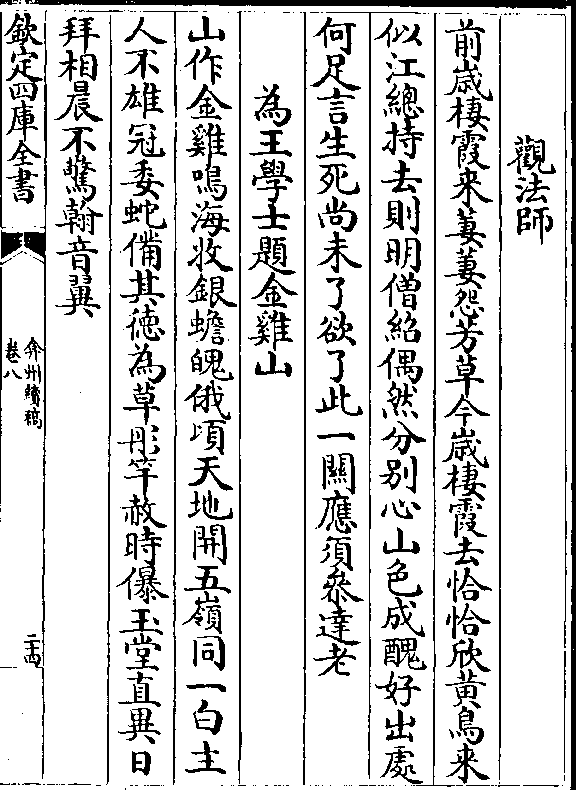 觀法師
前嵗棲霞来萋萋怨芳草今嵗棲霞去恰恰欣黄鳥来
似江總持去則明僧紹偶然分别心山色成醜好出處
何足言生死尚未了欲了此一關應須叅達老
為王學士題金雞山
山作金雞鳴海收銀蟾魄俄頃天地開五嶺同一白主
人不雄冠委蛇備其徳為草彤竿赦時儤玉堂直異日
拜相晨不驚翰音翼
欽定四庫全書
弇州續稿
卷八
二十四